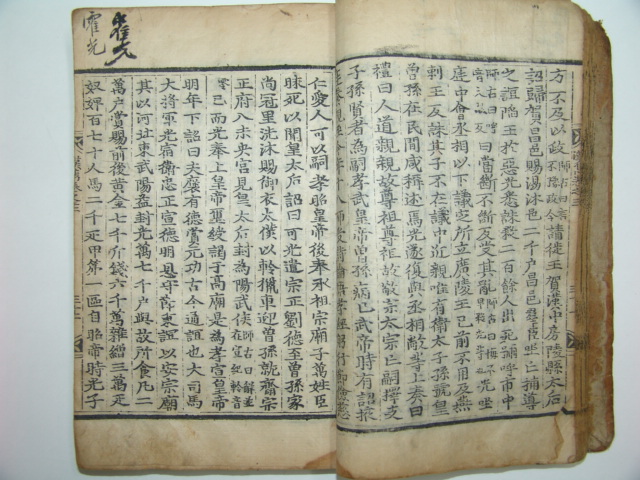 方不及以政師古曰言不豫政令請徙王賀漢中房陵縣太后
詔歸賀昌邑賜湯沐邑二千户昌邑羣臣坐亡輔導
之誼陷王於惡光悉誅殺二百餘人出死號呼市中
曰當斷不斷反受其亂
庭中會丞相以下議定所立廣陵王已前不用及燕
剌王反誅其子不在議中近親唯有衛太子孫號皇
曾孫在民間咸稱述焉光遂復與丞相敞等上奏曰
禮曰人道親親故尊祖尊祖故敬宗太宗亡嗣擇支
子孫賢者爲嗣孝武皇帝曾孫病已武帝時有詔掖
仁愛人可以嗣孝昭皇帝後奉承祖宗廟子萬姓臣
昧死以聞皇太后詔曰可光遣宗正劉德至曾孫家
尚冠里洗沐賜御衣太僕以軨獵車迎曾孫就齋宗
正府入未央宫見皇太后封為陽武侯
已而光奉上皇帝璽綬謁于高廟是為孝宣皇帝
明年下詔曰夫襃有德賞元功古今通誼也大司馬
大將軍光宿衛忠正宣德明恩守節秉誼以安宗廟
其以河北東武陽益封光萬七千户與故所食凡二
萬户賞賜前後黃金七千斤錢六千萬雜繒三萬疋
奴婢百七十人馬二千疋甲第一區自昭帝時光子
霍光
霍光